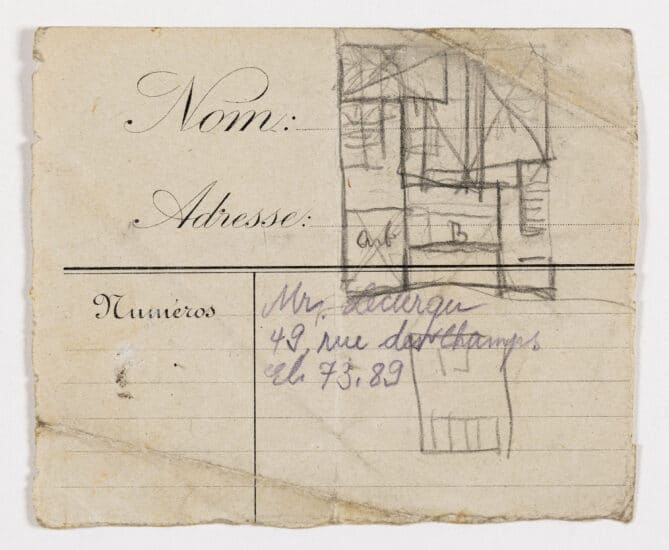 Nom:
Adresse:
B
Numéros
Mr. Leclerqu
49, rue des Champs
El. 73.89